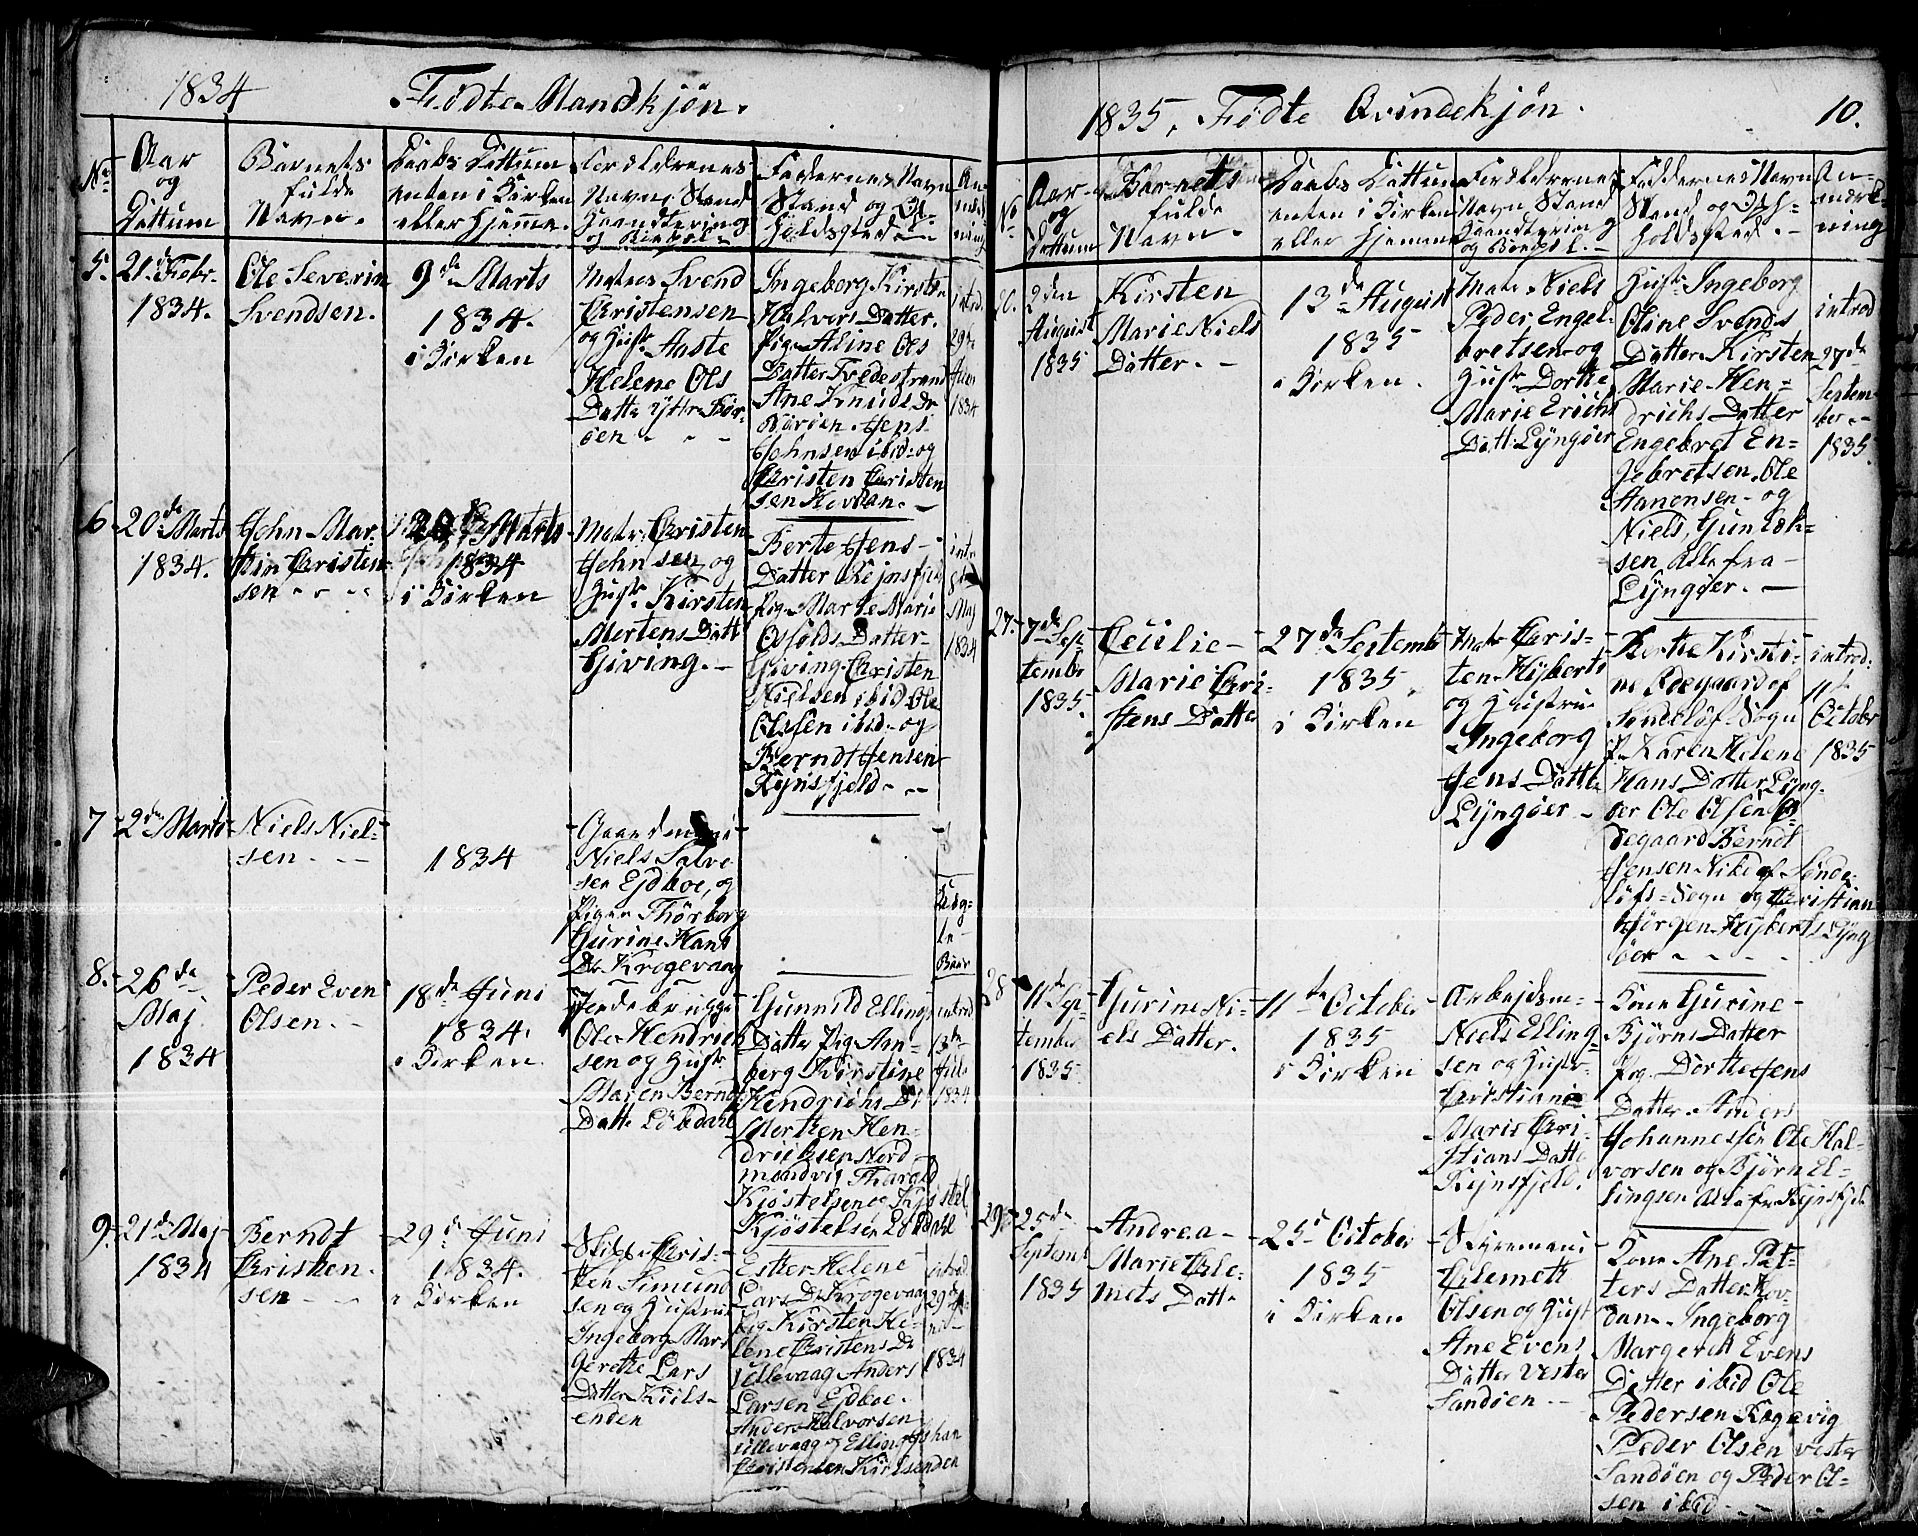 1834 Fødte Mandkjøn.
No
Aar
og
Dattum
Barnets
fulde
Navn.
Daabs Dattum
enten i Kirken
eller Hjemme.
Forældrenes
Navn, Stand
Haandtering
og Boepæl.
Faddernes Navn
Stand og Op-
holdssted.
An-
mærk-
ning
5. 21de Febr.
1834.
Ole Severin
Svendsen.
9de Marts
1834.
i Kirken
Matros Svend
Christensen
og Hustr. Anste
Helene Ols
Datte Yttre Bor-
øen
Ingeborg Kirsten
Halvors Datter.
Pige Aline Ols
Datter Fredestrand
Ane Knuds Dr
Borøen. Jens
Johnsen ibid og
Christen Christen
sen Hovdan.
introd.
29de
Juni
1834
6. 20de Marts
1834.
John Mar-
tin Christen-
sen
Marts
1834
i Kirken
Matr: Christen
Johnsen og
Hustr. Kirsten
Mertens Datt
Giving.
Berte Jens
Datter Rejnsfjeld
Pig. Marte Marie
Osfolds Datter
Giving. Christen
Nielsen ibid Ole
Olssen ibid og
Berndt Jensen
Rejnsfjeld
intr.
Maj
1834
7 2den Marts
Niels Niel-
sen
1834
Gaardmand
Niels Salve
sen Ejdboe, og
Pigen Thorborg
Gurine Hans
Dr Krogevaag
8. 26de
Maj
1834
Peder Even
Olsen.
18de Juni
1834.
i Kirken
Ole Hendrich
sen og Hustr
Maren Berndt
Datte
Gunnild Ellings
Datter Pig. An-
berg Kirstine
Hendrichs Dr
Morthen Hen-
driksen Nord
mandvig Thargld
Kjøstelsen og Kjøstel
Kjøstelsen
introd
13de
Juli
1834
9. 21de Maj
1834
Berndt
Christen-
sen
29de Juni
1834.
i Kirken
Skipp. Chris-
ten Simund
sen og Hustrue
Ingeborg Mar
grethe Lars
Datter Kiils-
enden
Ester Helene
Lars Dr Krogevaag
Pig Kirsten He-
lene Christens Dr
Lillevaag Anders
Larsen Ejdboe.
Anders Halvorsen
Lillevaag og Elling Johan
Christensen Kiilsenden
introd.
29de
1834
1835. Fødte Qvindekjøn. 10.
No
Aar
og
Dattum
Barnets
fulde
Navn.
Daabs Dattum
enten i Kirken
eller Hjemme
Forældrenes
Navn Stand
Haandtering
og Boepæl.
Faddernes Navn
Stand og Op-
holdssted.
An-
mærk-
ning
2den
August
1835
Kirsten
Marie Niels
Datter.
13de August
1835
i Kirken.
Matr Niels
Peder Engel-
bretsen og
Hustr Dorthe
Marie Erichs
Datt Lyngøer
Hustr. Ingeborg
Oline Svends
Datter Kirsten
Marie Hen-
drichs Datter
Engebret En-
gebretsen. Ole
Aanonsen og
Niels Gunlek-
sen Alle fra
Lyngøer.
introd
27de
Septem-
ber
1835
27. 7de Sep-
tember
1835.
Cecilie
Marie Chri-
stens Datte
27de Septembr
1835.
i Kirken
Matr Chris-
ten Hyberts
og Hustrue
Ingeborg
Jens Datte
Lyngøer
ne Roegaard af
Søndeløf Sogn
P. Karen Helene
Hans Datter Lyng-
øer Ole Olsen
degaard Berndt
Jensen Nibe af Sønde-
løfs Sogn og Christian
Jørgen Hyberts Lyng
øer
introd:
11de
October
1835
28 11te Sep-
tember
1835.
Gurine Ni-
els Datter.
11te October
1835
i Kirken
Arbejdsm.
Niels Elling-
sen og Hustr.
Christiane
Marie Chri-
stians Datte
Rejnsfjeld.
Kone Gurine
Bjørns Datter
Pig. Dorthe Jens
Datter Anders
Johannessen Ole Hal-
vorsen og Bjørn El-
lingsen Alle fr Rejnsfjeld
29. 25de
Septemb
1835
Andrea
Marie Cle-
mets Datte
25de October
1835
i Kirken
Styrmand
Clemett
Olsen og Hustr
Ane Evens
Datter Vester
Sandøen
Kone Ane Pet-
ters Datter Hov-
dan Ingeborg
Margerett Evens
Datter ibid Ole
Pedersen Kragevig
Peder Olsen Vester
Sandøen og Peder Ol-
sen ibid